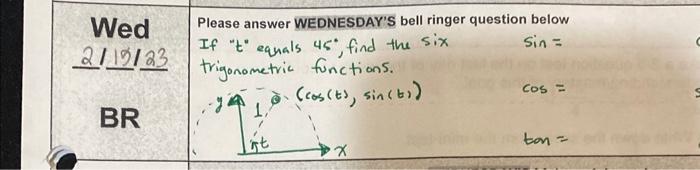 Wed
2/15/23
BR
Please answer WEDNESDAY'S bell ringer question below
If "t" equals 45°, find the six
trigonometric functions.
sin =
cos =
tan =
y
1
(cos(t), sin(t))
t
x